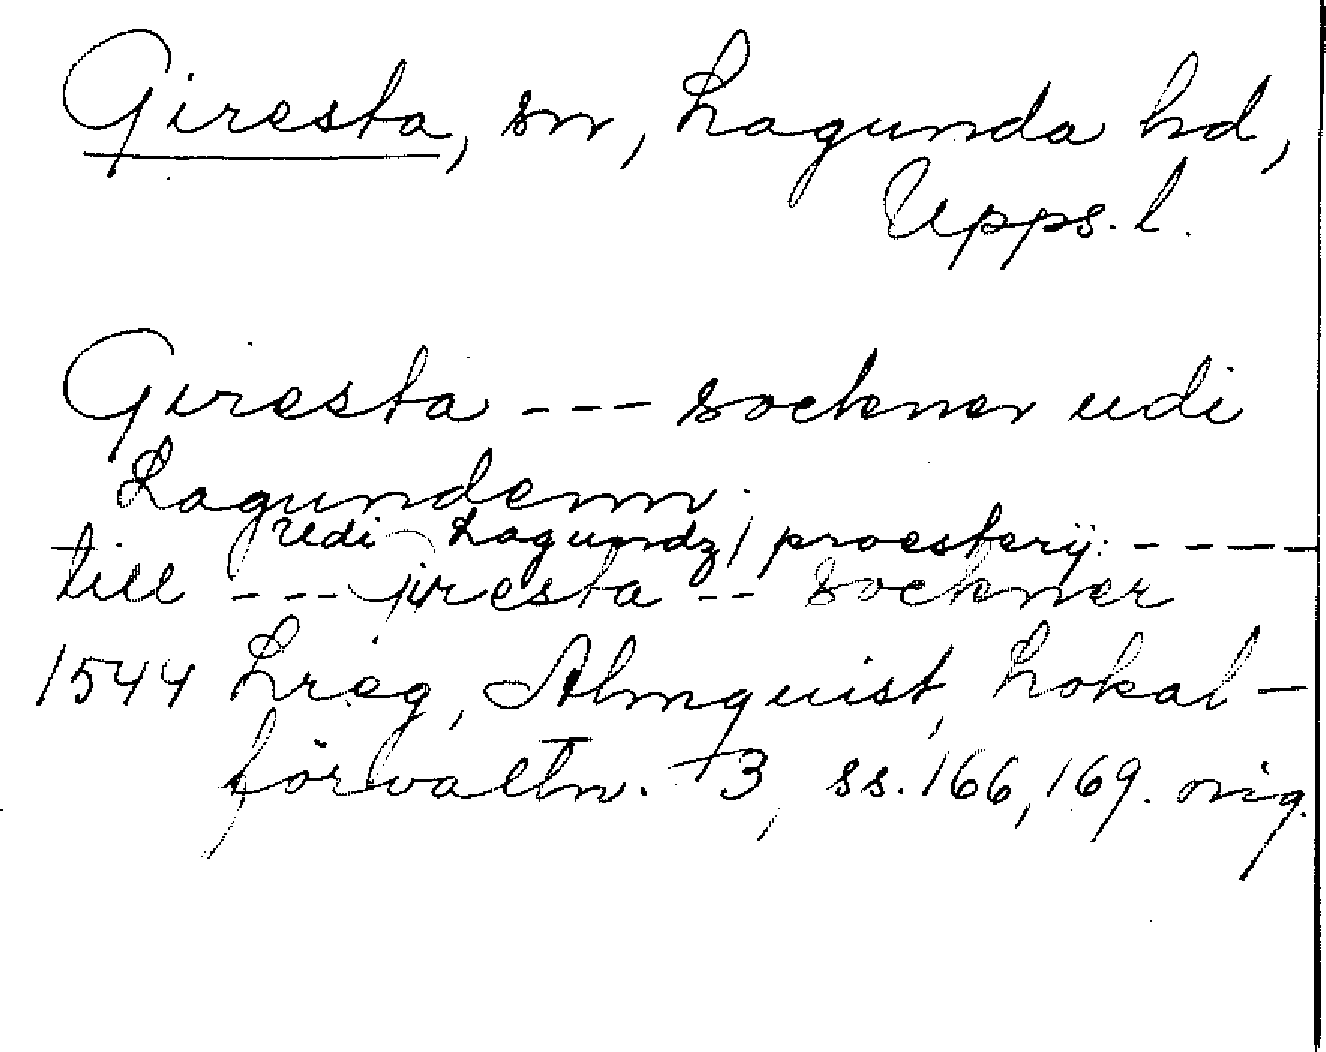 Giresta, sn, Lagunda hd,
Upps. l.
Giresta --- sockner udi
Lagundenn.
Udi Lagundz proesterij: ----
till --- jiresta -- sockner
1544 Lreg, Almquist, Lokal-
förvaltn. I3, ss. 166, 169. orig.